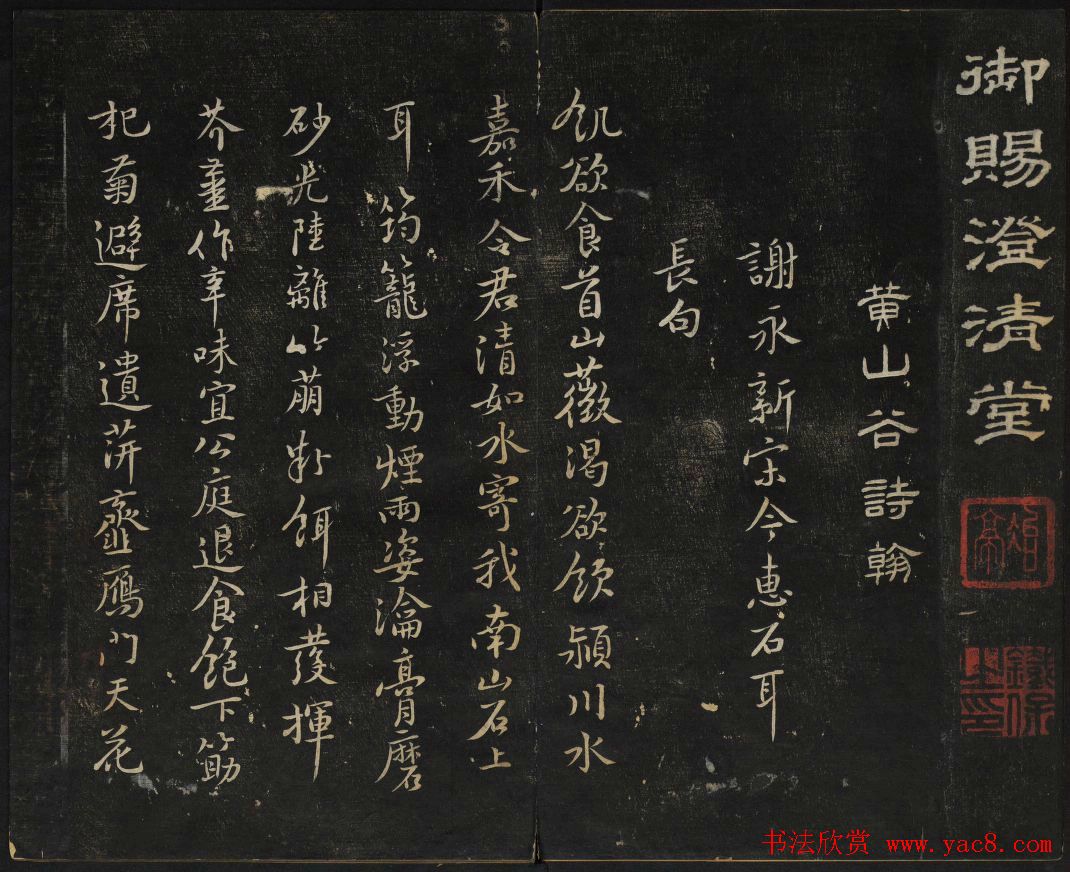 御賜澄清堂
黄山谷詩翰
謝永新宋令惠石耳
長句
飢欲食首山薇渴欲飲潁川水
嘉禾令君清如水寄我南山石上
耳筠籠浮動煙雨姿瀹膏磨
砂光陸離竹萌粉餌相發揮
芥薑作辛味宜公庭退食飽下筯
杞菊避席遺萍齏鴈門天花
鐵保之印
书法欣赏 www.yac8.com